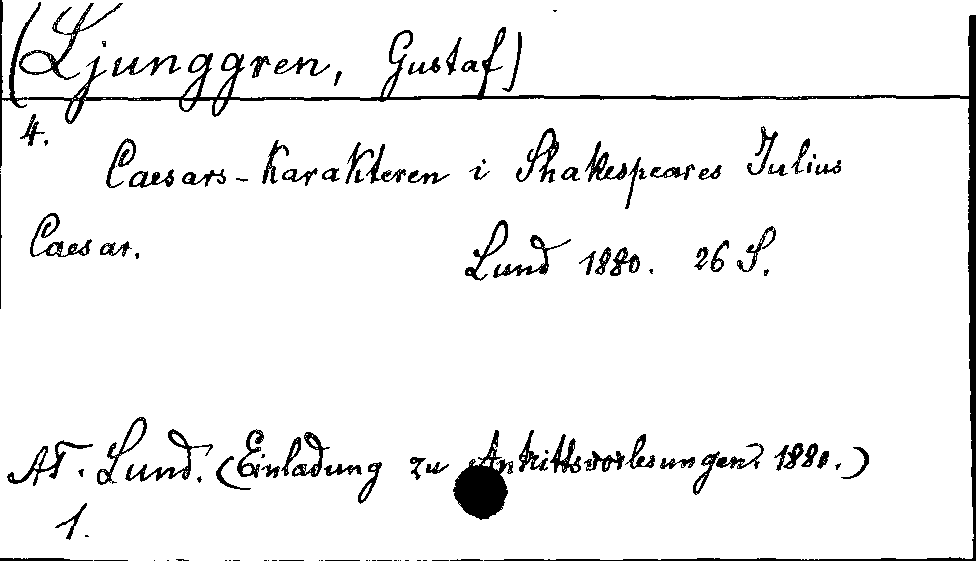 (Ljunggren, Gustaf)
4.
Caesars-Karakteren i Shakespeares Julius
Caesar.
Lund 1880. 26 S.
AT. Lund. (Einladung zu Antrittsvorlesungen. 1880.)
1.